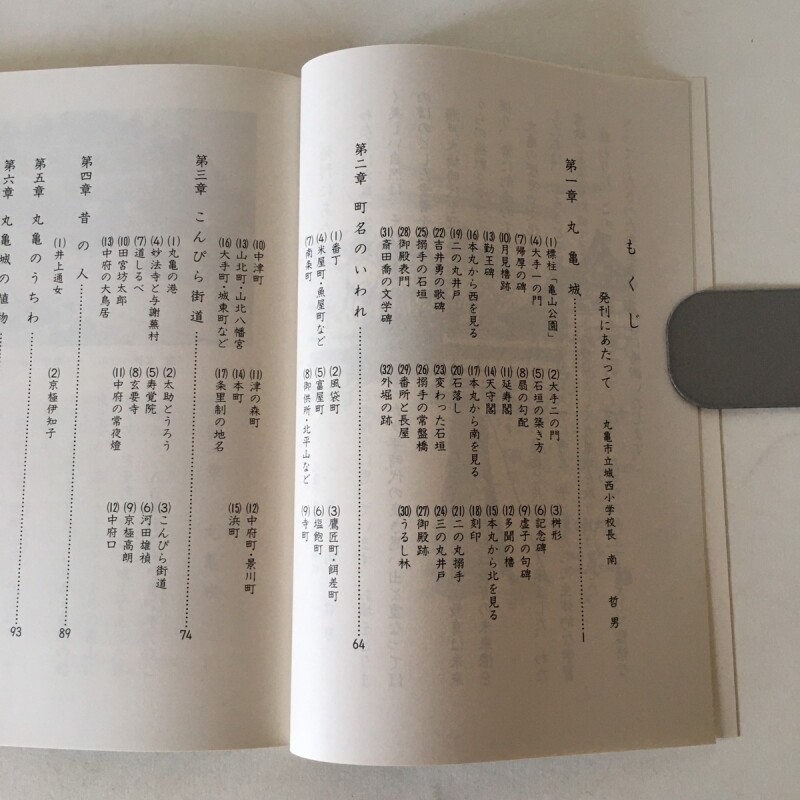 もくじ
発刊にあたって 丸亀市立城西小学校長 南 哲男
第一章 丸亀城 1
⑴標柱「亀山公園」 ⑵大手二の門 ⑶桝形
⑷大手一の門 ⑸石垣の築き方 ⑹記念碑
⑺帰厚の碑 ⑻扇の勾配 ⑼虚子の句碑
⑽月見櫓跡 ⑾延寿閣 ⑿多聞の櫓
⒀勤王碑 ⒁天守閣 ⒂本丸から北を見る
⒃本丸から西を見る ⒄本丸から南を見る ⒅刻印
⒆二の丸井戸 ⒇石落し (21)二の丸搦手
(22)吉井勇の歌碑 (23)変わった石垣 (24)三の丸井戸
(25)搦手の石垣 (26)搦手の常盤橋 (27)御殿跡
(28)御殿表門 (29)番所と長屋 (30)うるし林
(31)斎田喬の文学碑 (32)外堀の跡
第二章 町名のいわれ 64
⑴番丁 ⑵風袋町 ⑶鷹匠町・餌差町
⑷米屋町・魚屋町など ⑸富屋町 ⑹塩飽町
⑺南条町 ⑻御供所・北平山など ⑼寺町
⑽中津町 ⑾津の森町 ⑿中府町・景川町
⒀山北町・山北八幡宮 ⒁本町 ⒂浜町
⒃大手町・城東町など ⒄条里制の地名
第三章 こんぴら街道 74
⑴丸亀の港 ⑵太助とうろう ⑶こんぴら街道
⑷妙法寺と与謝蕪村 ⑸寿覚院 ⑹河田雄禎
⑺道しるべ ⑻玄要寺 ⑼京極高朗
⑽田宮坊太郎 ⑾中府の常夜燈 ⑿中府口
⒀中府の大鳥居
第四章 昔の人 89
⑴井上通女 ⑵京極伊知子
第五章 丸亀のうちわ 93
第六章 丸亀城の植物